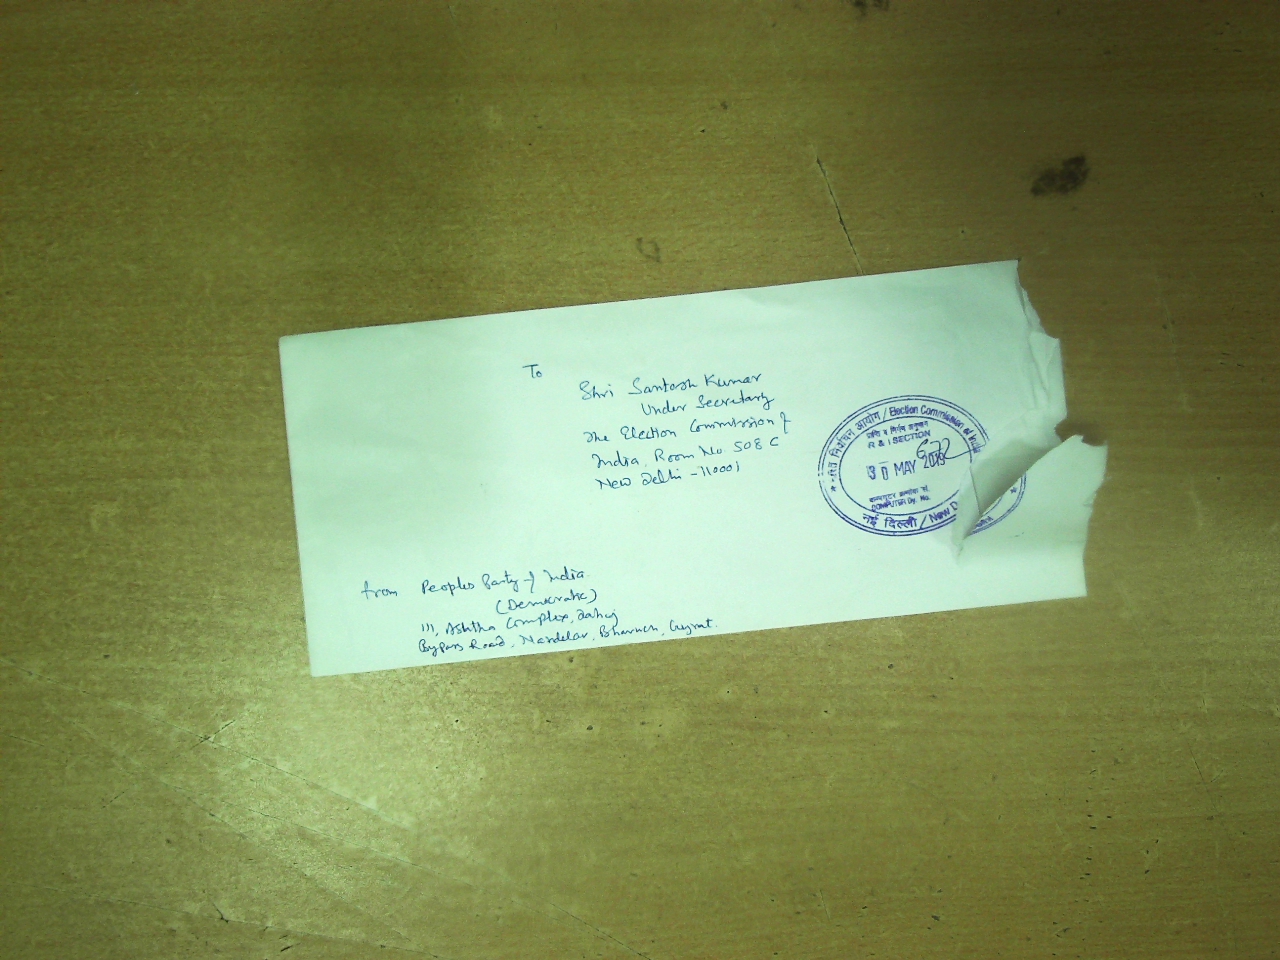 To
Shri Santosh Kumar
Under Secretary
The Election Commission of
India, Room No. 508 C
New Delhi - 110001
भारत निर्वाचन आयोग / Election Commission of India
प्राप्ति व निर्गम अनुभाग
R & I SECTION
672
30 MAY 2019
कम्प्यूटर क्रमांक सं.
COMPUTER Dy. No.
नई दिल्ली / New D
from Peoples Party of India
(Democratic)
111, Ashtha Complex, Dahej
Bypass Road, Nandelav, Bharuch, Gujrat.